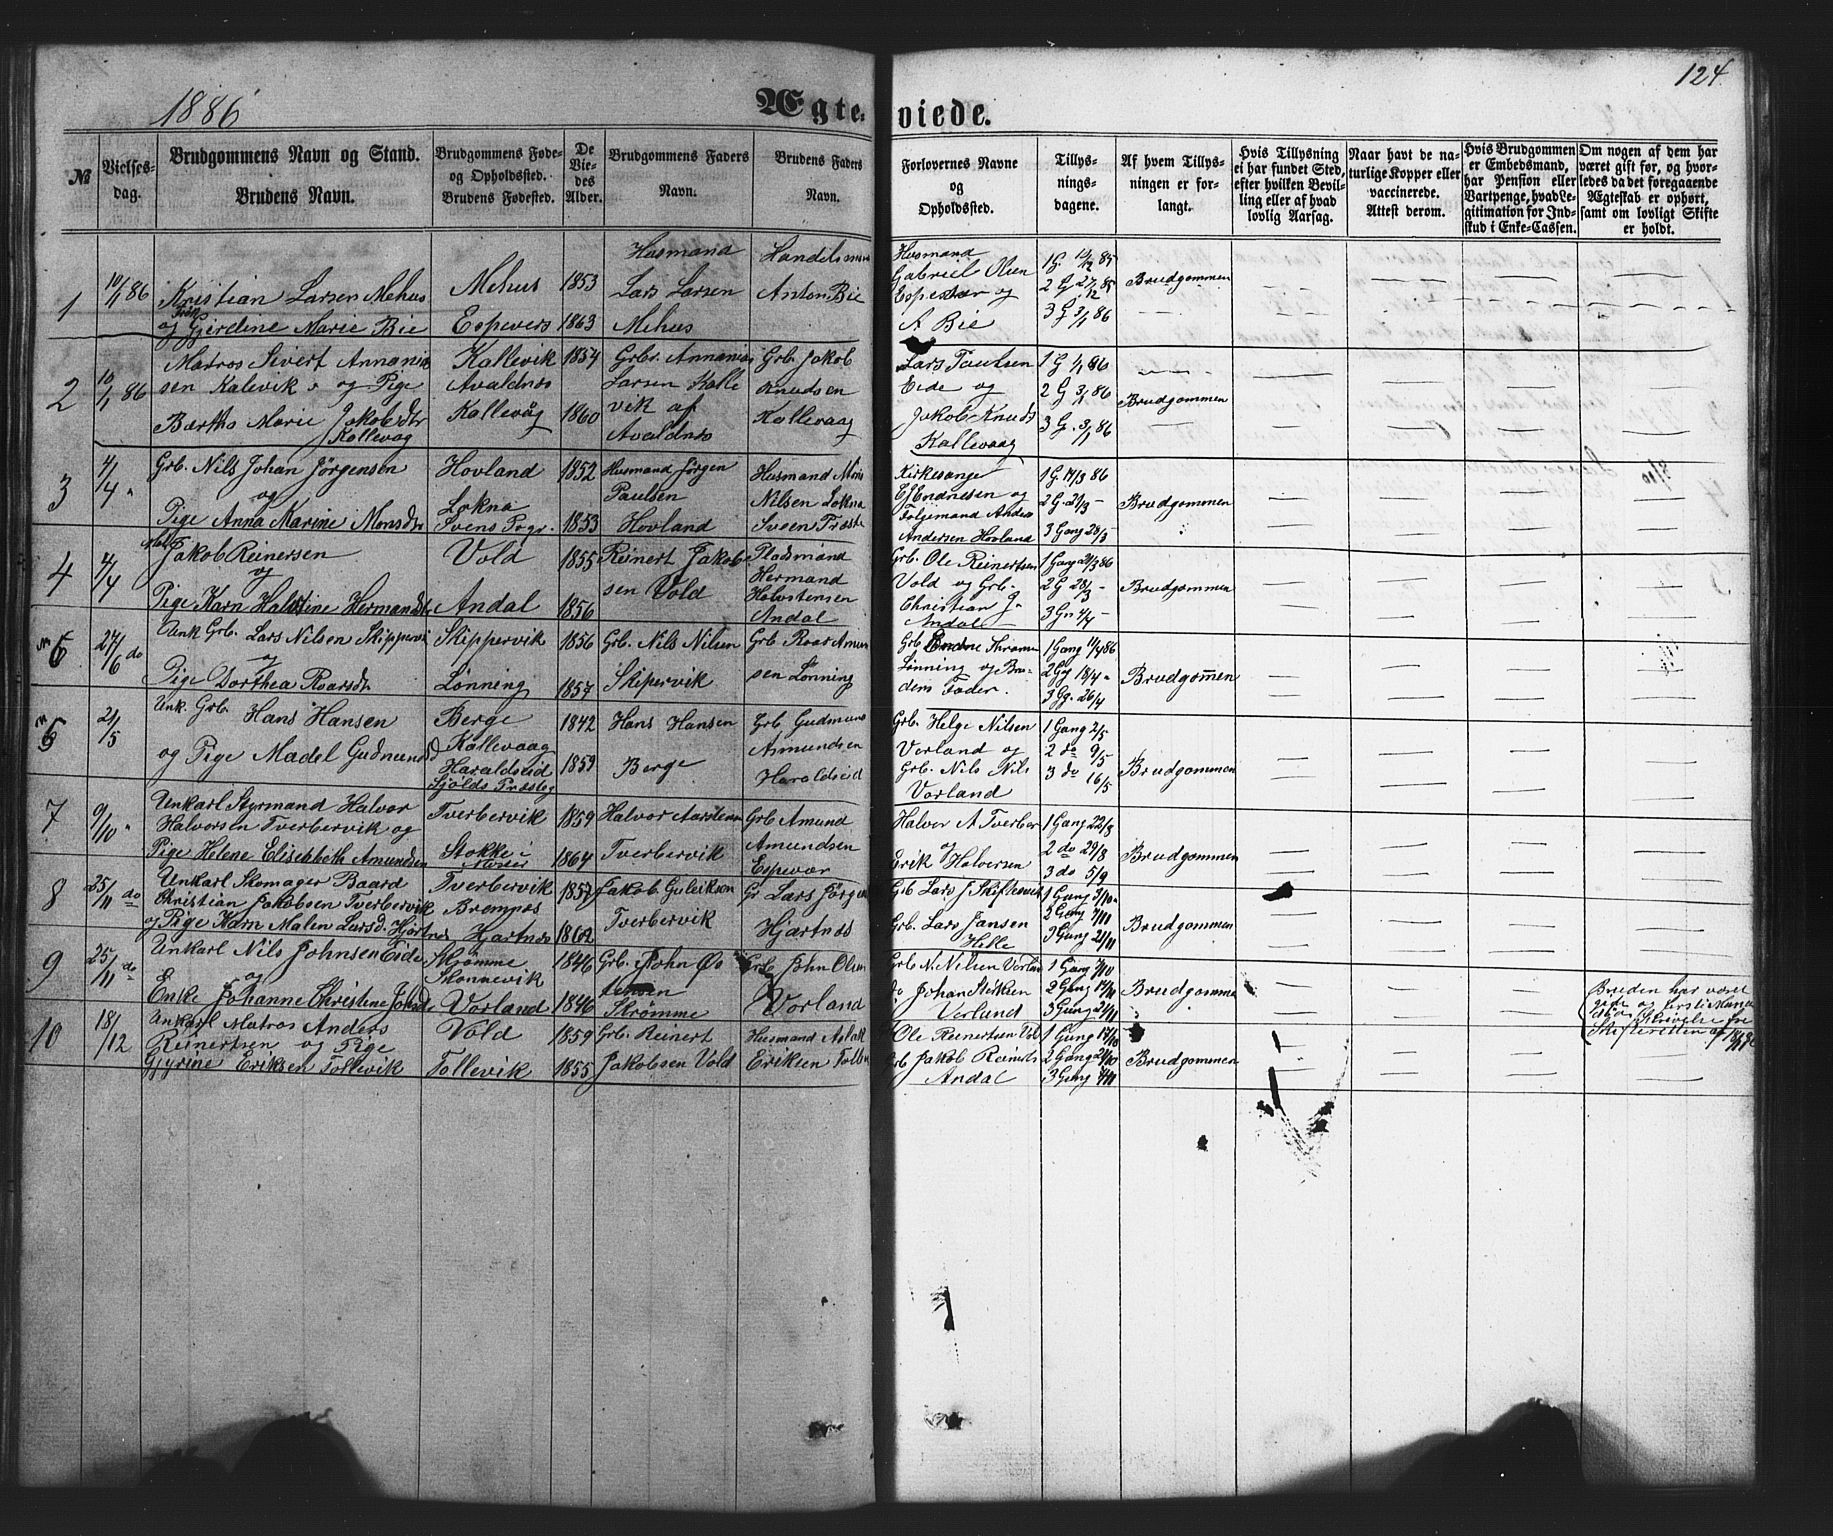 124
1886
Ægteviede.
№
Vielses-
dag.
Brudgommens Navn og Stand.
Brudens Navn.
Brudgommens Føde-
og Opholdssted.
Brudens Fødested.
De
Vie-
des
Alder.
Brudgommens Faders
Navn.
Brudens Faders
Navn.
Forlovernes Navne
og
Opholdssted.
Tillys-
nings-
dagene.
Af hvem Tillys-
ningen er for-
langt.
Hvis Tillysning
ei har fundet Sted,
efter hvilken Bevil-
ling eller af hvad
lovlig Aarsag.
Naar havt de na-
turlige Kopper eller
vaccinerede.
Attest derom.
Hvis Brudgommen
er Embedsmand,
har Pension eller
Vartpenge, hvad Le-
gitimation for Ind-
skud i Enke-Cassen.
Om nogen af dem har
været gift før, og hvor-
ledes da det foregaaende
Ægteskab er ophørt,
samt om lovligt Skifte
er holdt.
1
10/1 86
Kristian Larsen Mehus
og Pige Gjerdine Marie Bie
Mehus
Espevær
1853
1863
Husmand
Lars Larsen
Mehus
Handelsmand
Anton Bie
Husmand
Gabriel Olsen
Espevær og
A Bie
1 G. 12/12 85
2 G 27/12 85
3 G 3/1 86
Brudgommen
2
10/1 86
Matros Sivert Annanias
sen Kalevik og Pige
Bærtha Marie Jakobsdtr
Kallevag
Kallevik
Avaldnæs
Kallevåg
1854
1860
Grbr. Annanias
Larsen Kalle
vik af
Avaldnæs
Grb Jakob
Knudsen
Kallevaag
Lars Paulsen
Eide og
Jakob Knuds
Kallevaag
1 G 1/1 86
2 G 3/1 86
3 G. 3/1 86
Brudgommen
3
4/4 "
Grb. Nils Johan Jørgensen
og
Pige Anna Marine Monsdtr
Hovland
Lokna
Svens Prgr.
1852
1853
Husmand Jørgen
Paulsen
Hovland
Husmand Mons
Nilsen Lokna
Sveen Præste
Kirkesanger
E Endresen og
Følgemand Anders
Andersen Hovland
1 G. 14/3 86
2 G. 21/3 -
3 Gang 28/3
Brudgommen
4
4/4
Jakob Reinersen
og
Pige Karn Halstine Hermandsdtr
Vold
Andal
1855
1856
Reinert Jakob
sen Vold
Pladsmand
Hermand
Halvstensen
Andal
Grb. Ole Reinertsen
Vold og Grb.
Christian J.
Andal
1 Gang 21/3 86
2 G 28/3 -
3 Gn 4/4 -
Brudgommen
6
27/6 do
Unk Grb. Lars Nilsen Skippervi
og
Pige Dorthea Roarsdtr
Skippervik
Lønning
1856
1857
Grb. Nils Nilsen
Skipervik
Grb Roar Amun
sen Lønning
Grb Endre
Lønning og Bru
dens Fader.
1 Gang 11/4 86
2 Gg 18/4 -
3 Gg. 26/4
Brudgommen
5
21/5
Unk. Grb. Hans Hansen
og Pige Madel Gudmunds
Berge
Kallevaag
Haraldseid
Sjolds Præsteg
1842
1859
Hans Hansen
Berge
Grb Gudmund
Asmundsen
Haraldseid
Grb. Helge Nilsen
Vorland og
Grb. Nils Nils
Vorland
1 Gang 2/5
2 do 9/5
3 do 16/5
Brudgommen
7
9/10 "
Unkarl Styrmand Halvor
Halvorsen Tverbervik og
Pige Helene Elisabbeth Amundsen
Tverbervik
Stokke i
1859
1864
Halvor Aarstensen
Tverbervik
Grb Amund
Amundsen
Espevær
Halvor A Tverber
og
Erik Halversen
1 Gang 22/8
2 do 29/8
3 do 5/9
Brudgommen
8
25/11 do
Unkarl Skomager Baard
Christian Jakobsen Tverbervik
og Pige Karn Malen Larsd. Hjartnæs
Tverbervik
Bremnes
Hjartnæs
1857
1862
Jakob Guleiksen
Tverbervik
Gr Lars Jørgen
Hjartnæs
Grb Lars J Skiftesvik
Grb. Lars Jansen
Hille
1 Gang 31/10
2 Gang 7/11
3 Gang 21/11
Brudgommen
9
25/11 do
Unkarl Nils Johnsen Eide
og
Enke Johanne Christine Johnsd
Strømme
Skonnevik
Vorland
1846
1846
Grb. John Øs
tensen
Strømme
Grb John Olsen
Vorland
Grb N. Nilsen Vorland
do Johan Steksen
Vorland
1 Gang 7/10
2 Gang 14/11
3 Gang 21/11
Brudgomme
Bruden har været
gift og første Mand
død Skrivelse fra
Skifteretten af
10
18/12
Unkarl Matros Anders
Reinertsen og Pige
Gjyrine Eriksen Tollevik
Vold
Tollevik
1859
1855
Grb. Reinert
Jakobsen Vold
Husmand Aslak
Eriksen Tolle
Ole Reinertsen Vol
Grb Jakob Reinerts
Andal
1 Gang 17/10
2 Gang 24/10
3 Gang 7/11
Brudgommen